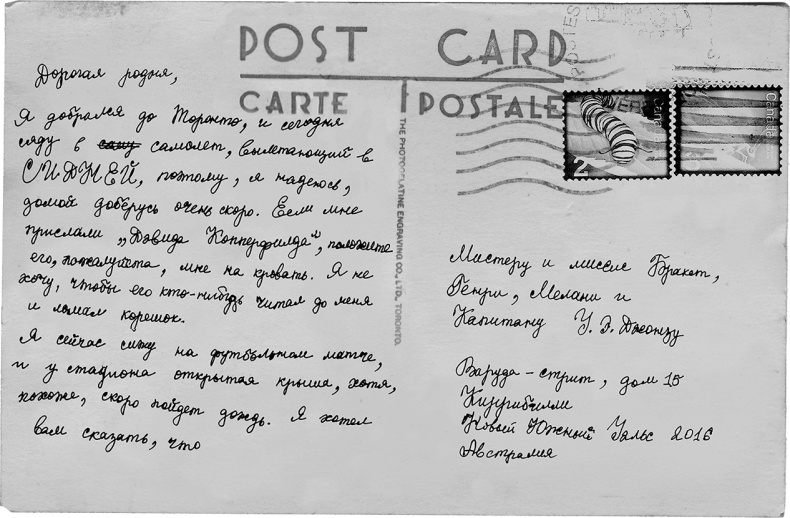 POST CARD
CARTE POSTALE
THE PHOTOGELATINE ENGRAVING CO., LTD., TORONTO.
2
CANADA
Дорогая родня,
Я добрался до Торонто, и сегодня
сяду в самолет, вылетающий в
СИДНЕЙ, поэтому, я надеюсь,
домой доберусь очень скоро. Если мне
прислали „Дэвида Копперфилда“, положите
его, пожалуйста, мне на кровать. Я не
хочу, чтобы его кто-нибудь читал до меня
и ломал корешок.
Я сейчас сижу на футбольном матче,
и у стадиона открытая крыша, хотя,
похоже, скоро пойдет дождь. Я хотел
вам сказать, что
Мистеру и миссис Бракет,
Генри, Мелани и
Капитану У. Э. Джонзу
Варуда-стрит, дом 15
Кизурибилли
Новый Южный Уэльс 2016
Австралия